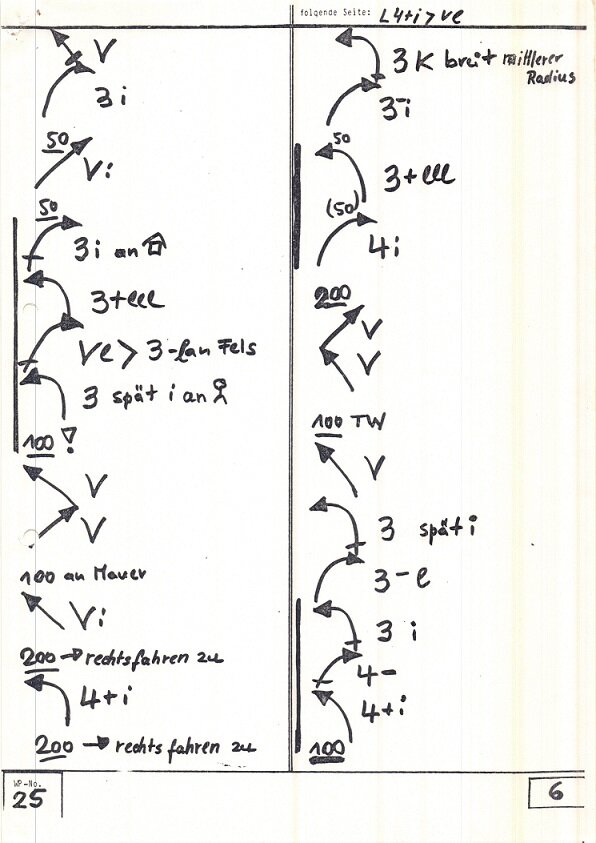 folgende Seite: L4+i > Ve
V
3i
50
Vi
50
3i an
3+lll
Ve > 3-lan Fels
3 spät i an
100 !
V
V
100 an Mauer
Vi
200 → rechtsfahren zu
4+i
200 → rechts fahren zu
3K breit mittlerer
Radius
3-i
50
3+lll
(50)
4i
200
V
V
100 TW
V
3 spät i
3-l
3 i
4-
4+i
100
WP-No.
25
6